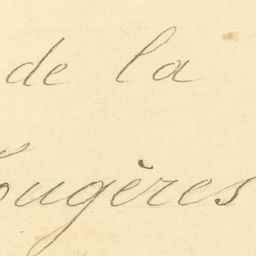 de la
ougères